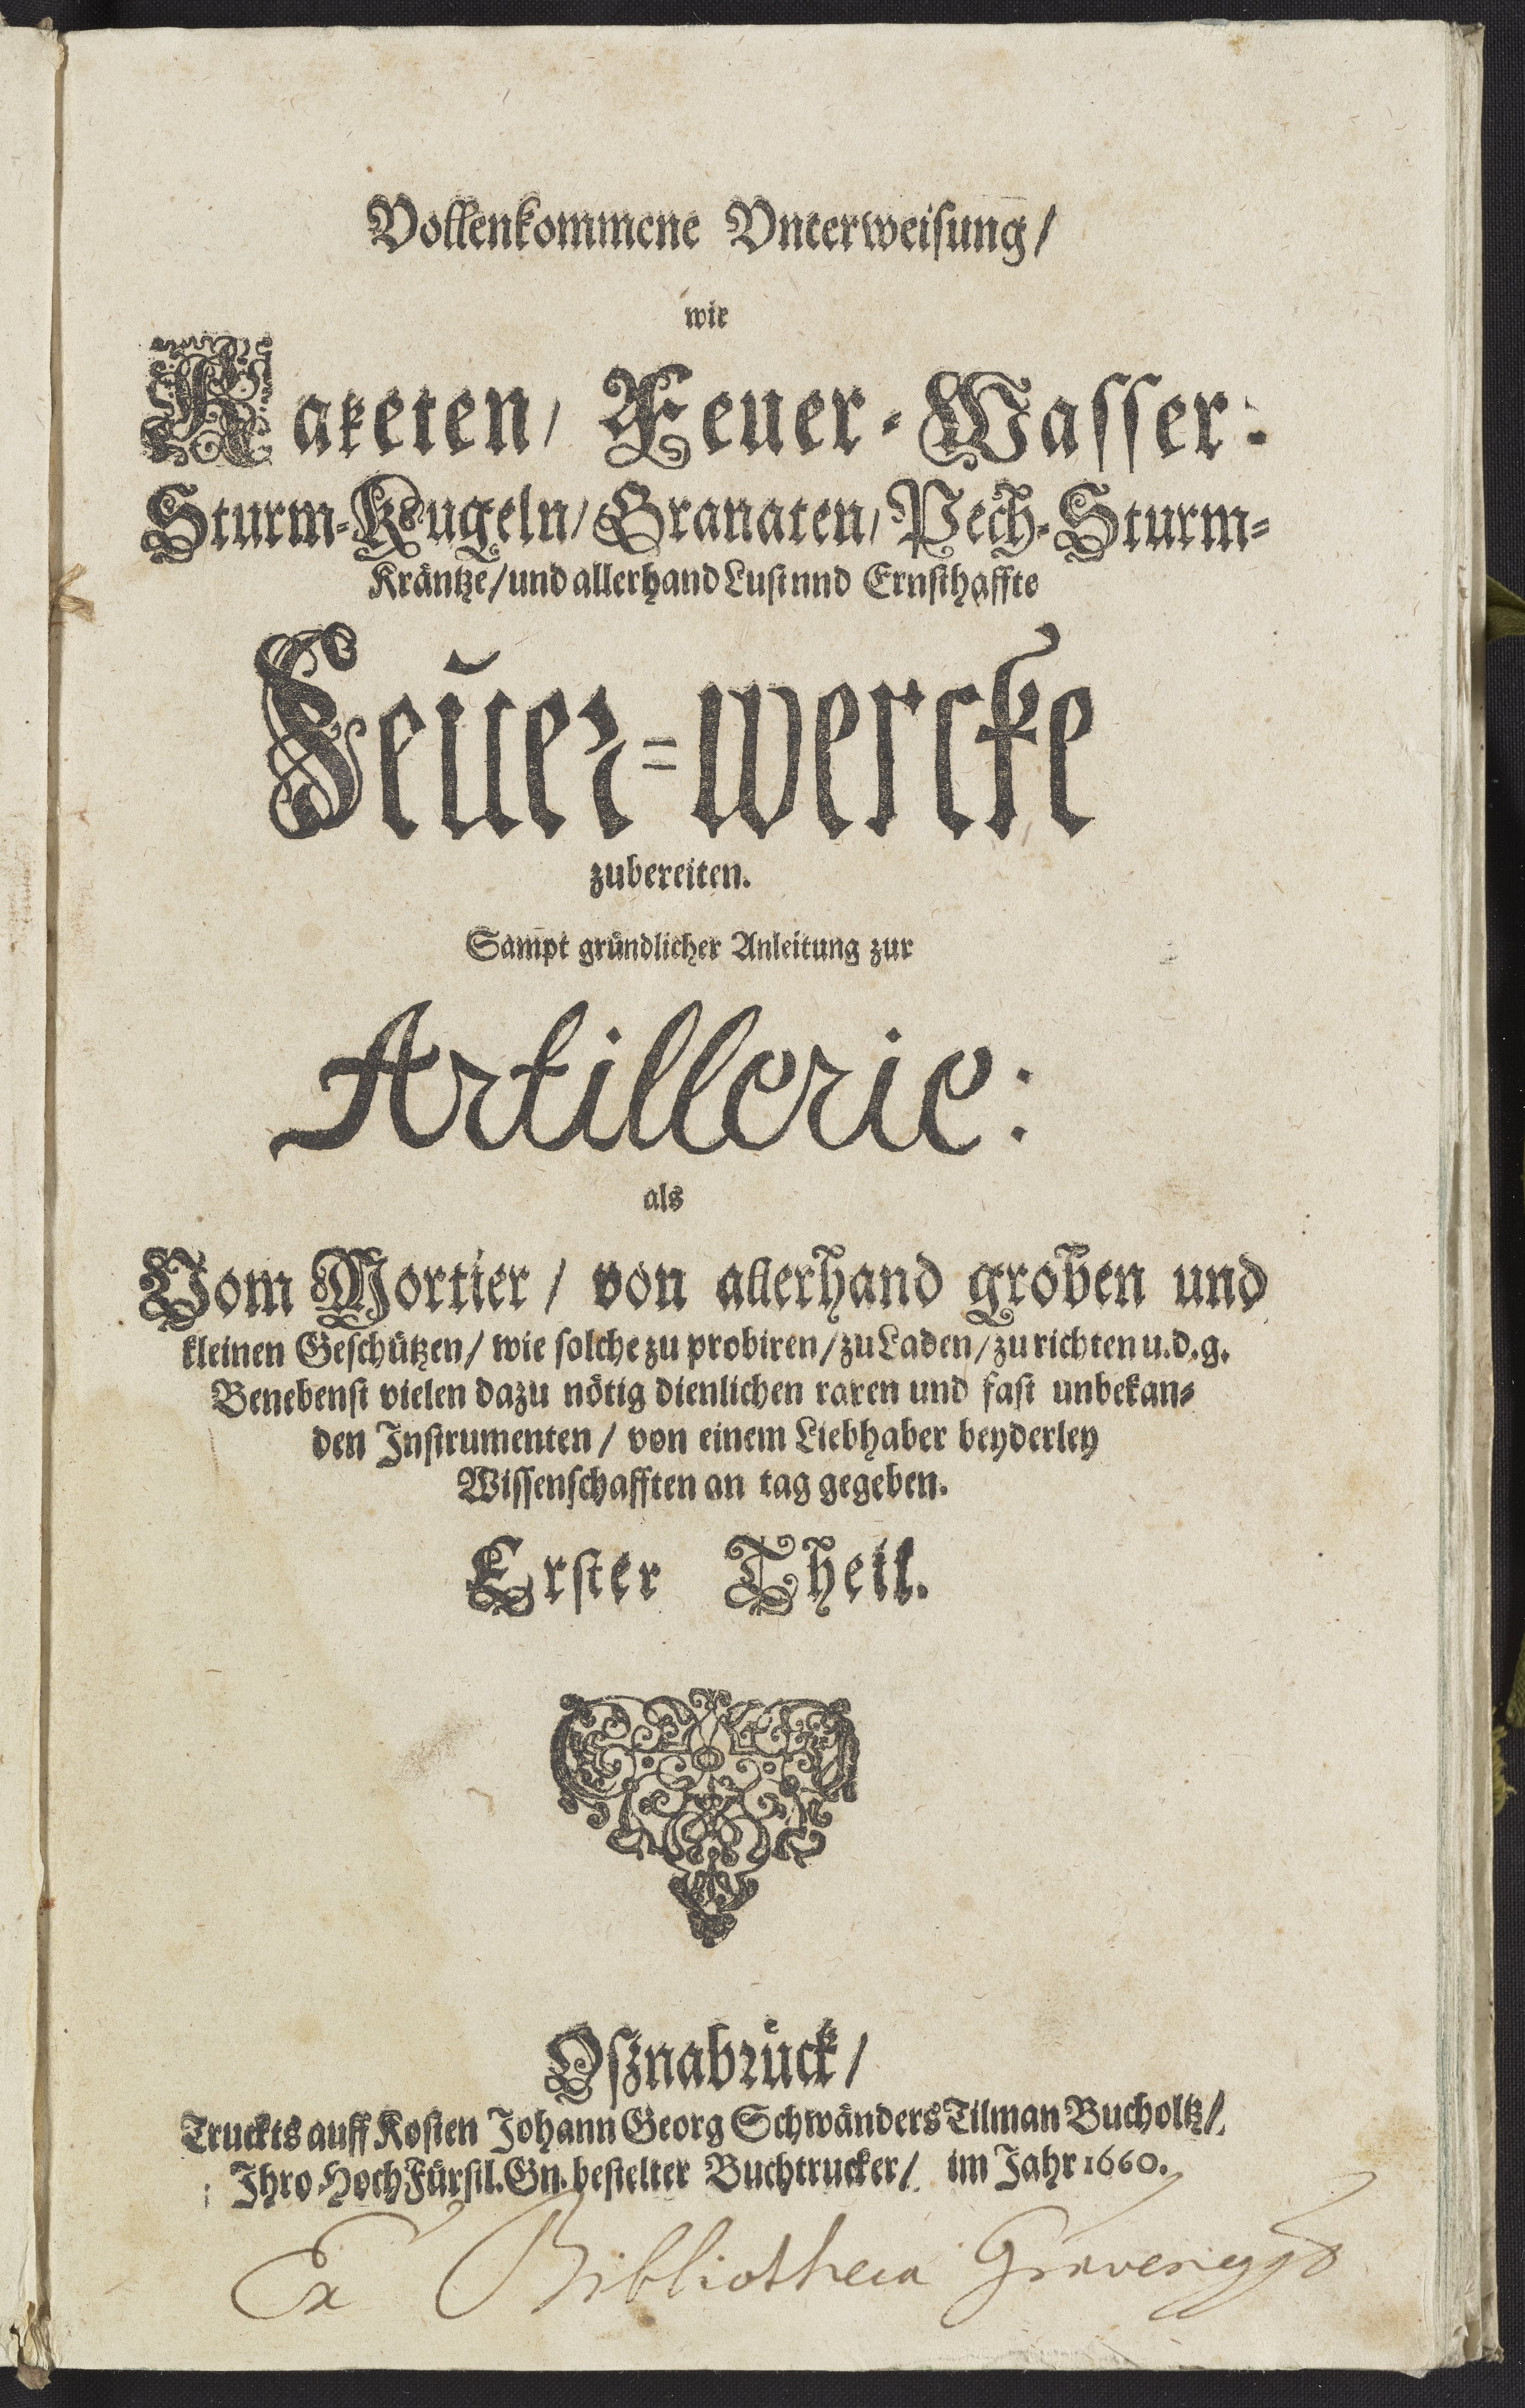 Vollenkommene Vnterweisung/
wie
Raketen/ Feuer-Wasser-
Sturm-Kugeln/Granaten/Pech-Sturm-
Kräntze/und allerhand Lust nnd Ernsthaffte
Feŭer-wercke
zubereiten.
Sampt gründlicher Anleitung zur
Artillerie:
als
Vom Mortier / von allerhand groben und
kleinen Geschützen/ wie solche zu probiren/zu Laden/zu richten u.d.g.
Benebenst vielen dazu nötig dienlichen raren und fast unbekan-
den Instrumenten / von einem Liebhaber beyderley
Wissenschafften an tag gegeben.
Erster Theil.
Osznabrück/
Truckts auff Kosten Johann Georg Schwänders Tilman Bucholtz/
Ihro HochFürstl. Gn. bestelter Buchtrucker/ im Jahr 1660.
Ex Bibliotheca